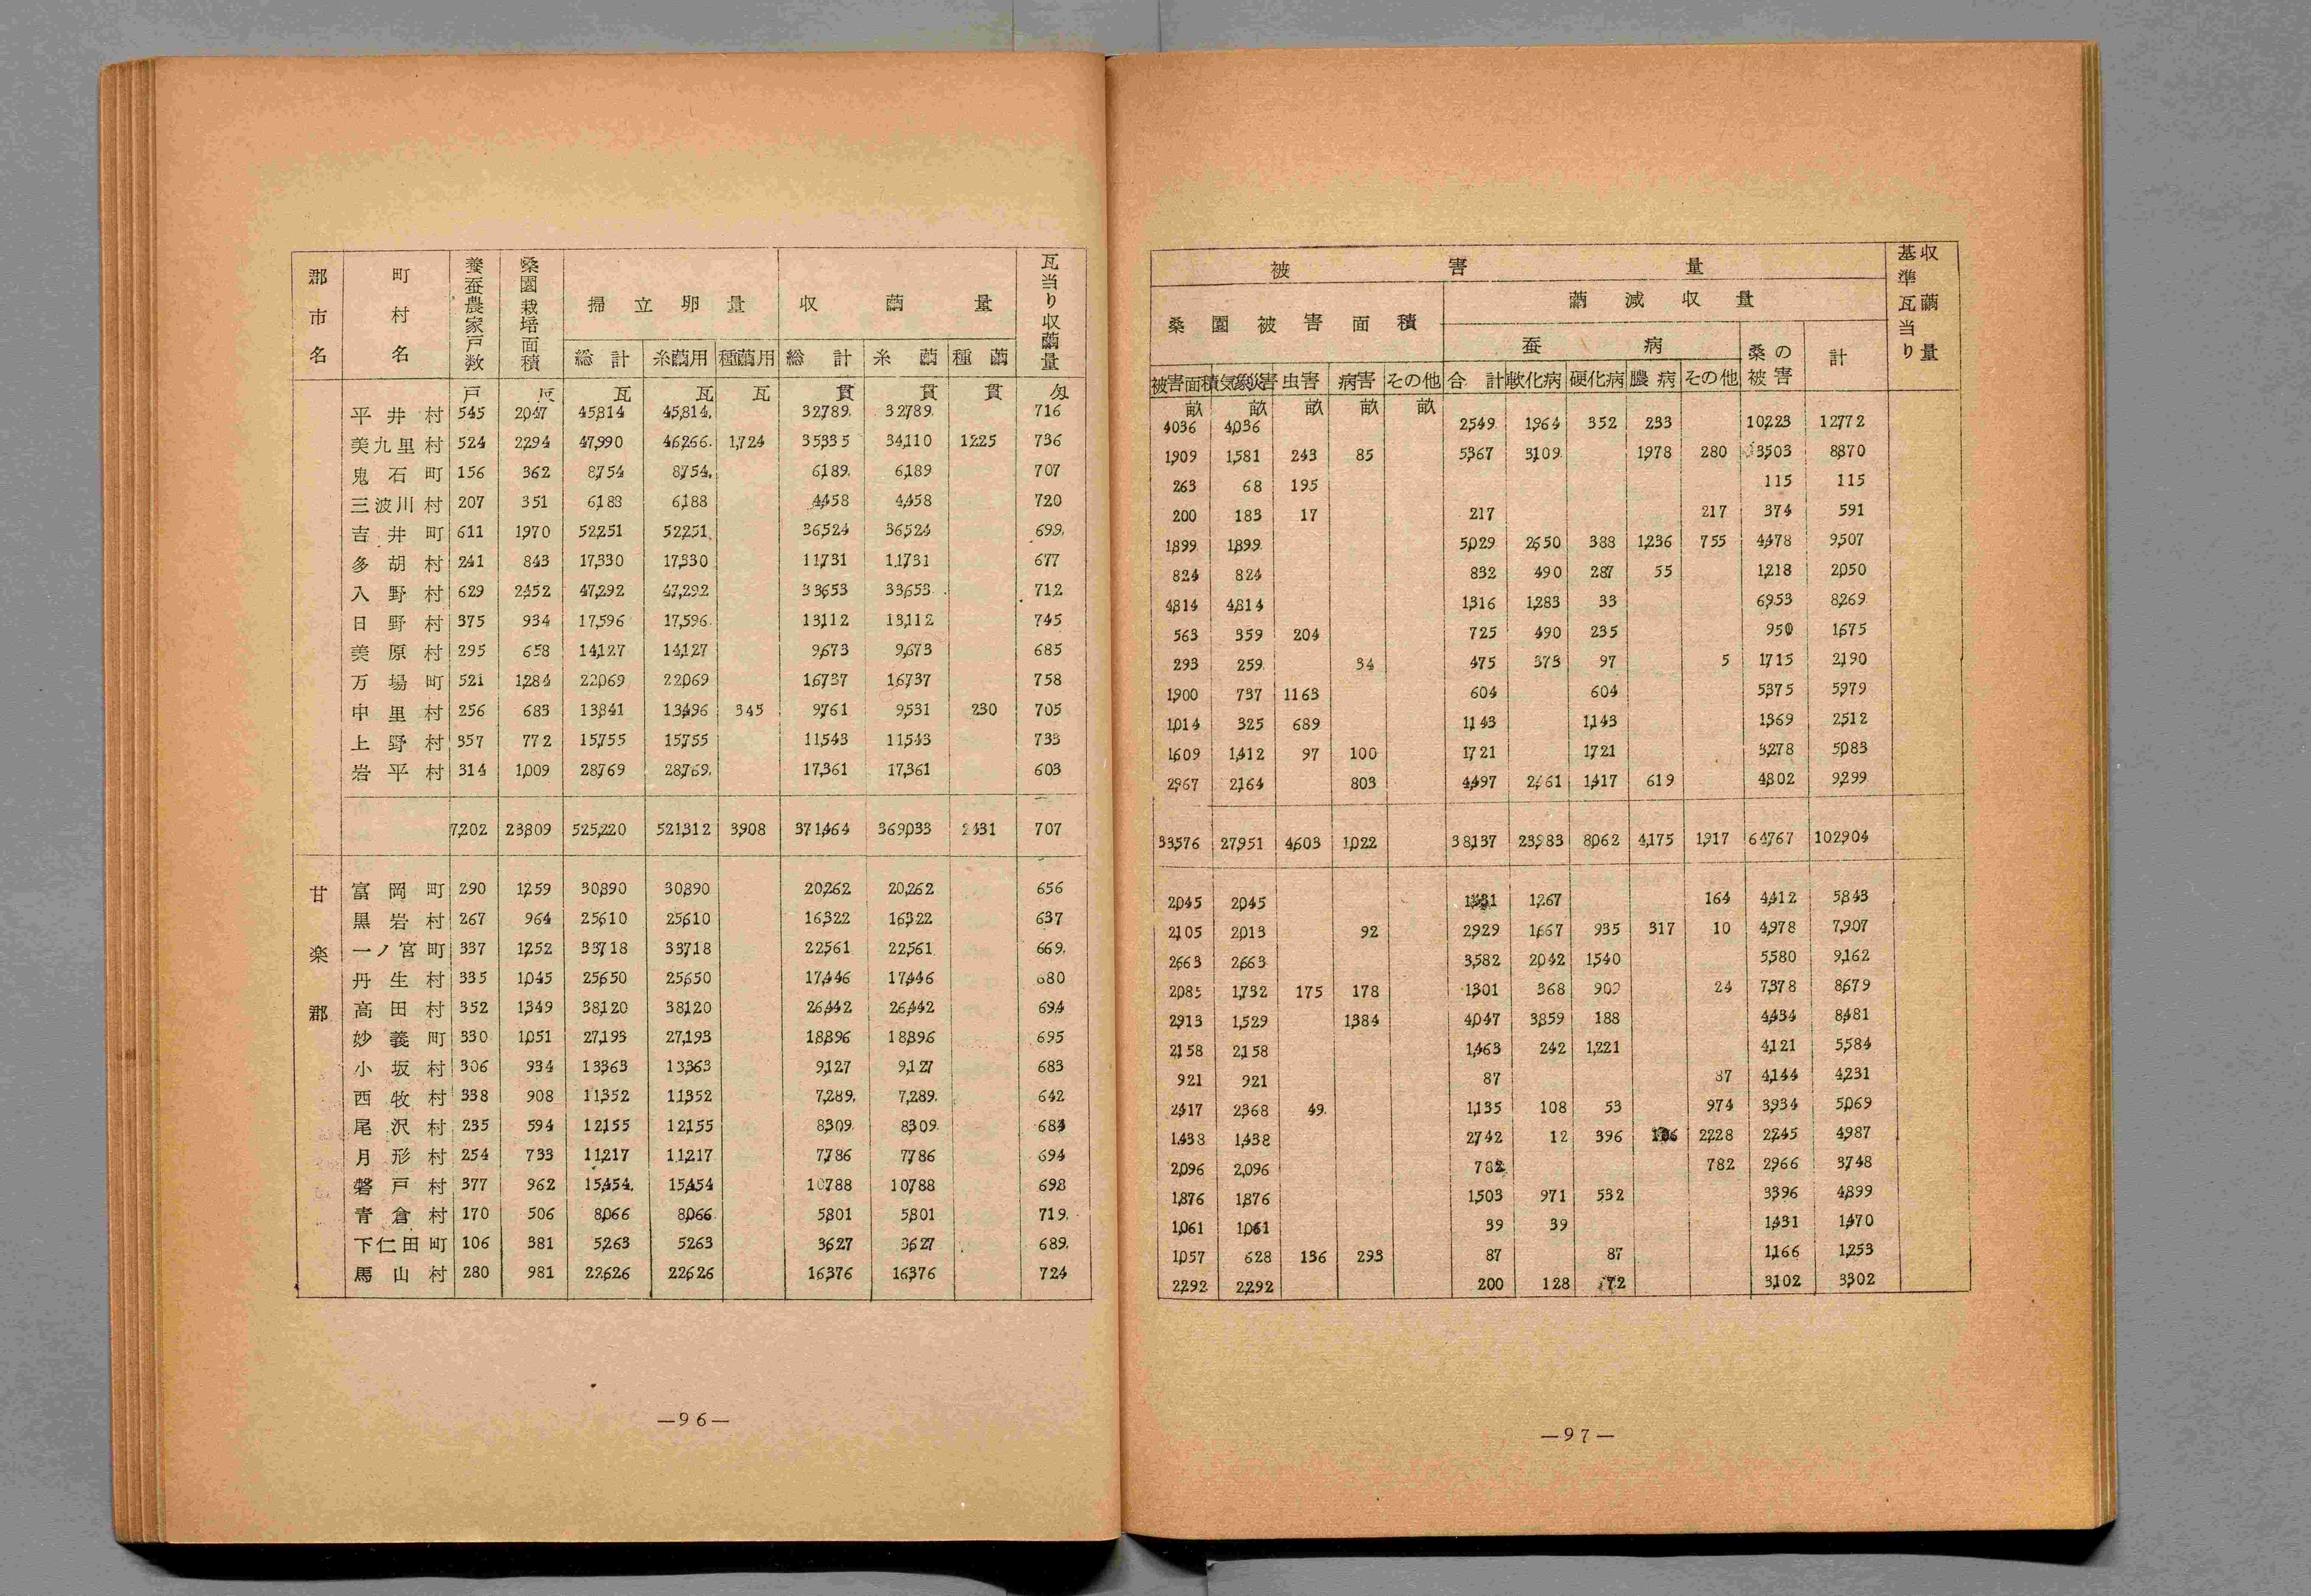 郡市名 町村名 養蚕農家戸数 桑園栽培面積 掃立卵量 収繭量 瓦当り収繭量
総計 糸繭用 種繭用 総計 糸繭 種繭
戸 瓦 瓦 瓦 貫 貫 貫 匁
平井村 545 2,047 45,814 45,814. 32,789. 32,789. 716
美九里村 524 2,294 47,990 46,266. 1,724 35,335 34,110 1,225 736
鬼石町 156 362 8,754 8,754. 6,189. 6,189 707
三波川村 207 351 6,188 6,188 4,458 4,458 720
吉井町 611 1,970 52,251 52,251. 36,524 36,524 699.
多胡村 241 843 17,330 17,330 11,731 11,731 677
入野村 629 2,452 47,292 47,292 33,653 33,653 712
日野村 375 934 17,596 17,596. 13,112 13,112 745
美原村 295 658 14,127 14,127 9,673 9,673 685
万場町 521 1,284 22,069 22,069 16,737 16,737 758
中里村 256 683 13,841 13,496 345 9,761 9,531 230 705
上野村 357 772 15,755 15,755 11,543 11,543 733
岩平村 314 1,009 28,769 28,769. 17,361 17,361 603
7,202 23,809 525,220 521,312 3,908 371,464 369,033 2,431 707
甘楽郡
富岡町 290 1,259 30,890 30,890 20,262 20,262 656
黒岩村 267 964 25,610 25,610 16,322 16,322 637
一ノ宮町 337 1,252 33,718 33,718 22,561 22,561 669.
丹生村 335 1,045 25,650 25,650 17,446 17,446 680
高田村 352 1,349 38,120 38,120 26,442 26,442 694
妙義町 330 1,051 27,193 27,193 18,896 18,896 695
小坂村 306 934 13,363 13,363 9,127 9,127 683
西牧村 338 908 11,352 11,352 7,289. 7,289. 642
尾沢村 235 594 12,155 12,155 8,309. 8,309. 684
月形村 254 733 11,217 11,217 7,786 7,786 694
磐戸村 377 962 15,454. 15,454 10,788 10,788 698
青倉村 170 506 8,066 8,066 5,801 5,801 719.
下仁田町 106 381 5,263 5,263 3,627 3,627 689.
馬山村 280 981 22,626 22,626 16,376 16,376 724
—96—
被害量 基準瓦当り収繭量
桑園被害面積 繭減収量
蚕病 桑の被害 計
被害面積 気象災害 虫害 病害 その他 合計 軟化病 硬化病 膿病 その他
畝 畝 畝 畝 畝
4,036 4,036 2,549 1,964 352 233 10,223 12,772
1,909 1,581 243 85 5,367 3,109. 1,978 280 3,503 8,870
263 68 195 115 115
200 183 17 217 217 374 591
1,899 1,899. 5,029 2,650 388 1,236 755 4,478 9,507
824 824 832 490 287 55 1,218 2,050
4,814 4,814 1,316 1,283 33 6,953 8,269
563 359 204 725 490 235 950 1,675
293 259. 34 475 373 97 5 1,715 2,190
1,900 737 1,163 604 604 5,375 5,979
1,014 325 689 1,143 1,143 1,369 2,512
1,609 1,412 97 100 1,721 1,721 3,278 5,083
2,967 2,164 803 4,497 2,461 1,417 619 4,802 9,299
33,576 27,951 4,603 1,022 38,137 23,983 8,062 4,175 1,917 64,767 102,904
2,045 2,045 1,267 164 4,412 5,843
2,105 2,013 92 2,929 1,667 935 317 10 4,978 7,907
2,663 2,663 3,582 2,042 1,540 5,580 9,162
2,085 1,732 175 178 1,301 368 909 24 7,378 8,679
2,913 1,529 1,384 4,047 3,859 188 4,434 8,481
2,158 2,158 1,463 242 1,221 4,121 5,584
921 921 87 87 4,144 4,231
2,417 2,368 49. 1,135 108 53 974 3,934 5,069
1,438 1,438 2,742 12 396 106 2,228 2,245 4,987
2,096 2,096 782 782 2,966 3,748
1,876 1,876 1,503 971 532 3,396 4,899
1,061 1,061 39 39 1,431 1,470
1,057 628 136 293 87 87 1,166 1,253
2,292 2,292 200 128 72 3,102 3,302
—97—